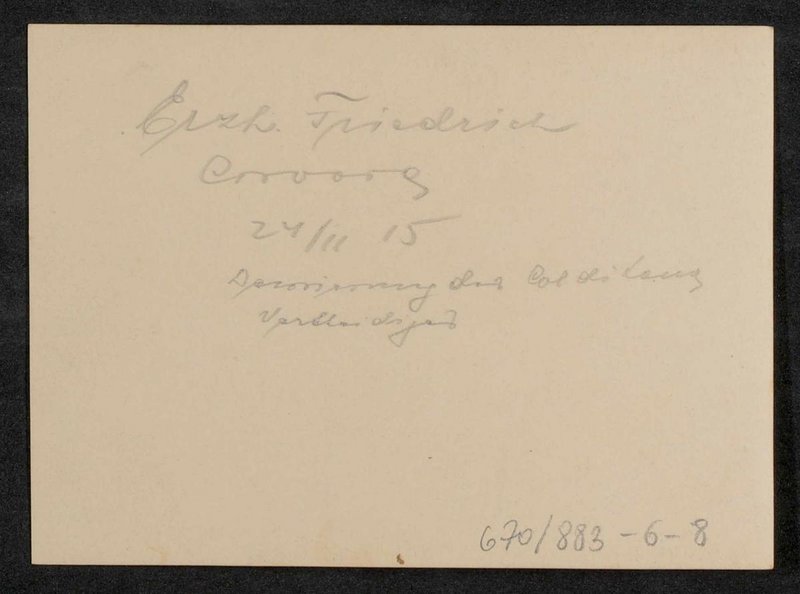 Erzh. Friedrich
Corvara
24/II 15
Decorierung der Col di Lana
Verteidiger
670/883-6-8